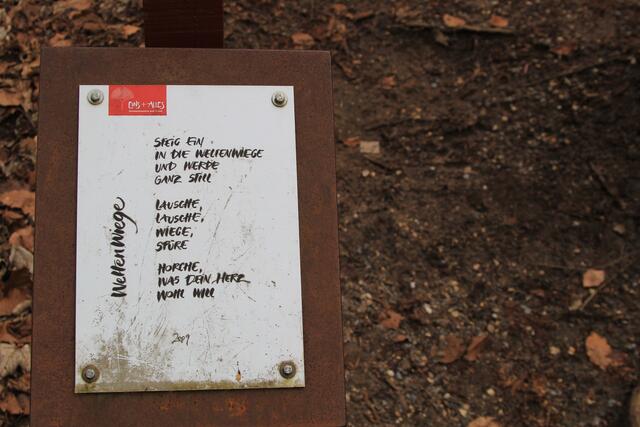 EINS+ALLES
WellenWiege
STEIG EIN
IN DIE WELLENWIEGE
UND WERDE
GANZ STILL
LAUSCHE,
LAUSCHE,
WIEGE,
SPÜRE
HORCHE,
WAS DEIN HERZ
WOHL WILL
2009